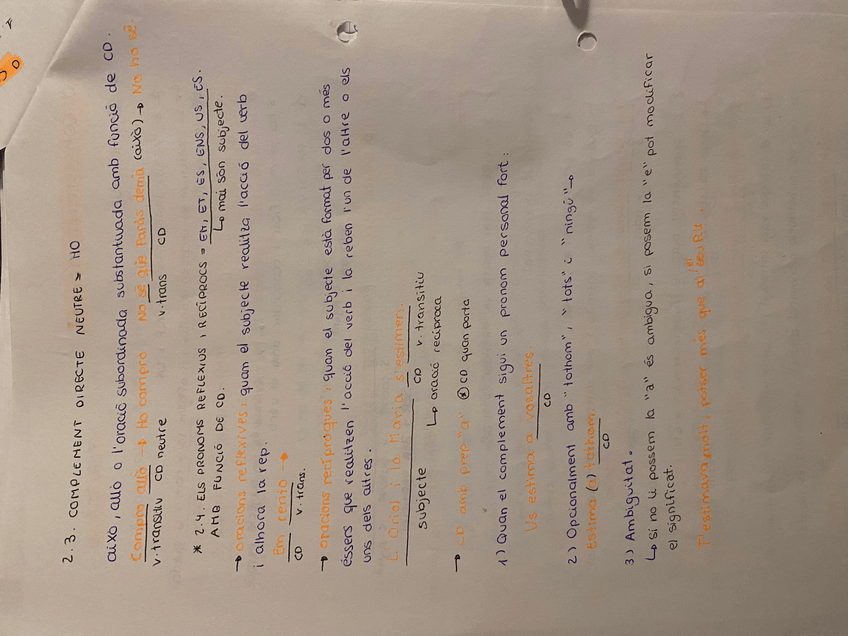 2.3. COMPLEMENT DIRECTE NEUTRE > HO
això, allò o l'oració subordinada substantivada amb funció de CD.
Compro allò → Ho compro No sé què faràs demà (això) → No ho sé.
v. transitiu CD neutre v. trans CD
* 2.4. ELS PRONOMS REFLEXIUS I RECÍPROCS = EM, ET, ES, ENS, US, ES.
AMB FUNCIÓ DE CD. ↳ mai són subjecte.
→ oracions reflexives, quan el subjecte realitza l'acció del verb
i alhora la rep.
Em rento →
CD v. trans.
→ oracions recíproques, quan el subjecte està format per dos o més
éssers que realitzen l'acció del verb i la reben l'un de l'altre o els
uns dels altres.
L'Oriol i la Maria s'estimen.
subjecte CD v. transitiu
↳ oració recíproca
→ CD amb prep "a" ⊛ CD quan porta
1) Quan el complement sigui un pronom personal fort:
Us estima a vosaltres.
CD
2) Opcionalment amb "tothom", "tots" i "ningú" →
Estima (a) tothom.
CD
3) Ambigüitat.
↳ si no li possem la "a" és ambigua, si posem la "e" pot modificar
el significat.
T'estimava molt, potser més que a'l seu fill.